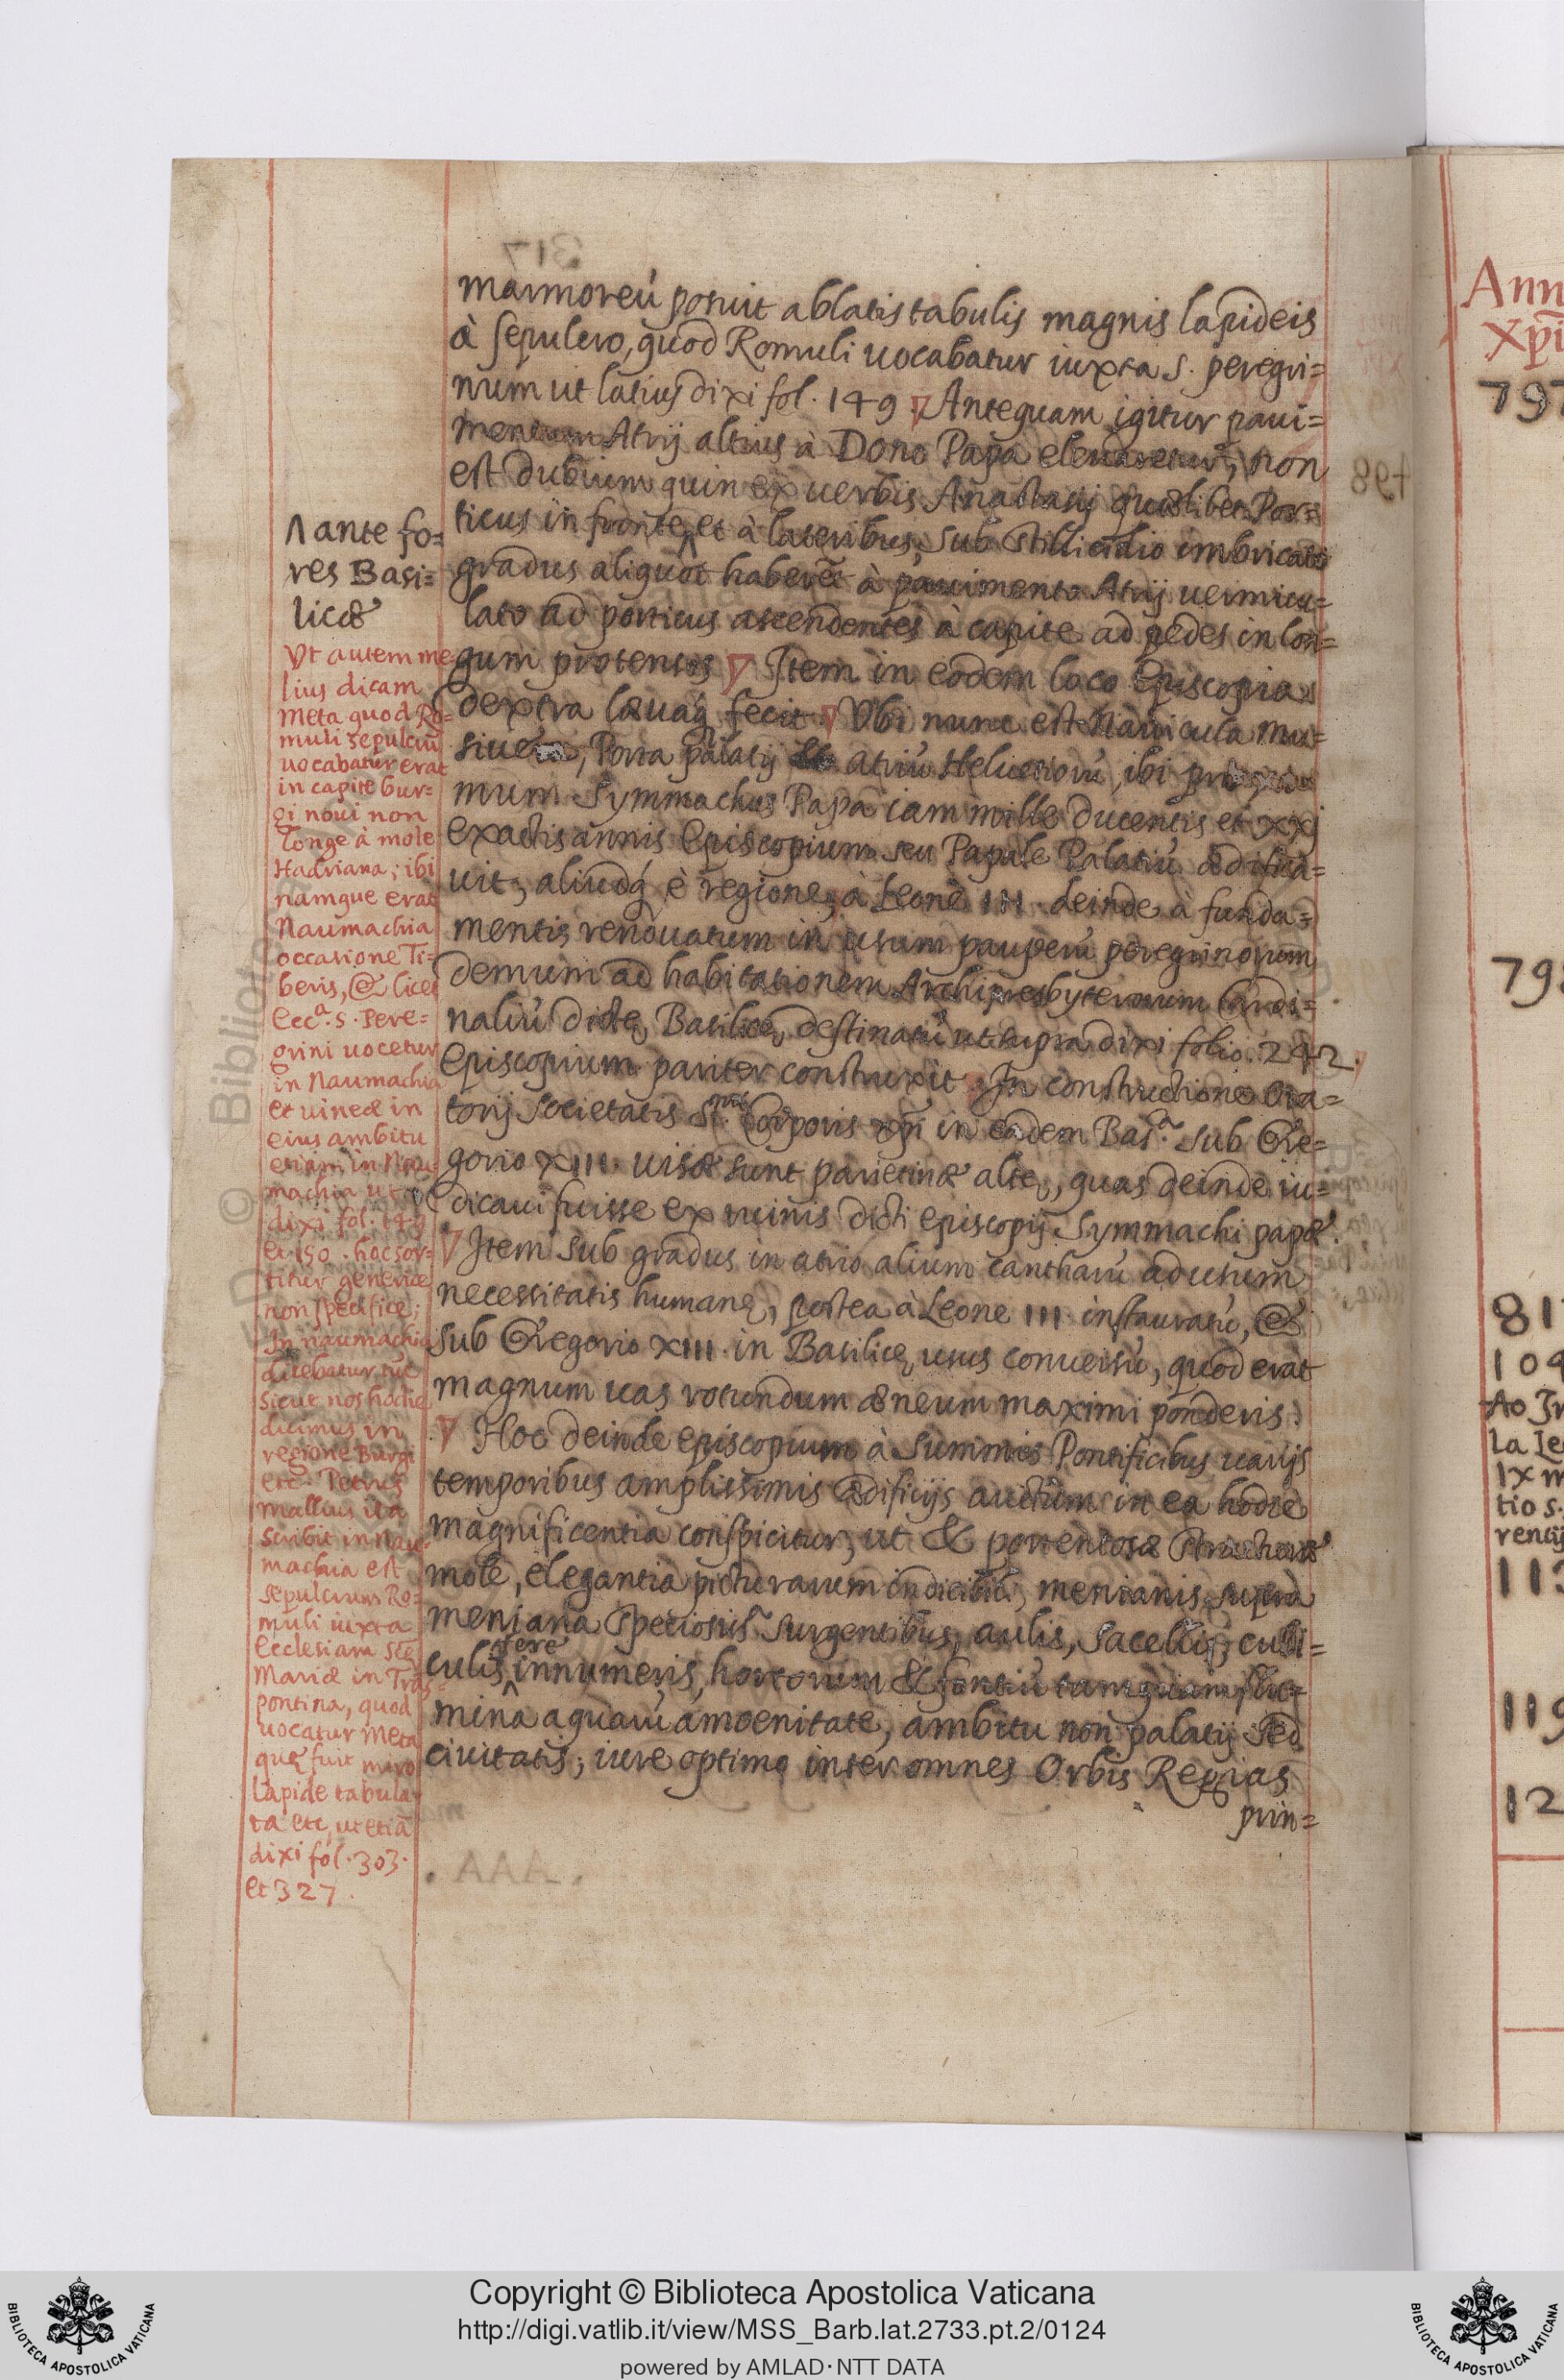 marmoreú posuit ablatis tabulis magnis lapideis
à sepulcro, quod Romuli uocabatur iuxta S. peregri=
num ut latius dixi fol. 149 Antequam igitur paui=
mentum Atrij altius à Dono Papa eleuaretur, non
est dubium quin ex uerbis Anastasij quælibet Por=
ticus in fronte, et à lateribus, sub stillicidio imbricato
gradus aliquot haberet à pauimento Atrij uermicu=
lato ad porticus ascendentes à capite ad pedes in lon=
gum protentos Item in eodem loco Episcopia
dextra læuaq́ fecit Vbi nunc est Nauicula mu=
siuea, Porta palatij atriú Heluetiorú, ibi
mum Symmachus Papa iam mille ducentis et xxj
exactis annis Episcopium seu Papale Palatiú ædifica=
uit, aliudq́ è regione, à Leone III. deinde à funda=
mentis renouatum in usum pauperú peregrinorum
demum ad habitationem Archipresbyterorum Cardi=
naliú dictę Basilicę destinatú ut supra dixi folio. 242.
Episcopium pariter construxit In constructione Ora=
torij Societatis S.mi Corporis xp̃i in eadem Bas.a sub Gre=
gorio XIII. uisæ sunt parietinæ altę, quas deinde iu=
dicaui fuisse ex ruinis dicti episcopij Symmachi papæ.
Item sub gradus in atrio alium cantharú ad usum
necessitatis humanę, postea à Leone III instauratú, &
sub Gregorio XIII. in Basilicę usus conuersú, quod erat
magnum uas rotundum æneum maximi ponderis.
Hoc deinde episcopium à Summis Pontificibus uarijs
temporibus amplissimis ædificijs auctum in ea hodie
magnificentia conspicitur, ut & portentosæ structuræ
mole, elegantia picturarum indicibili, menianis supra
meniana speciosis surgentibus, aulis, sacellis, cubi=
culis fere innumeris, hortorum & fontiú tamquam flu=
mina aquarú amoenitate, ambitu non palatij sed
ciuitatis; iure optimo inter omnes Orbis Regias
prin=
Λ ante fo=
res Basi=
licæ
Vt autem me
lius dicam
meta quod Ro=
muli sepulcrú
uocabatur erat
in capite bur=
gi noui non
longe à mole
Hadriana; ibi
namque erat
Naumachia
occasione Ti=
beris, & licet
ecc.a S. Pere=
grini uocetur
in Naumachia
et uineæ in
eius ambitu
etiam in Nau=
machia ut
dixi fol. 149
et 150. hoc sor=
titur generice
non specifice;
In naumachia
dicebatur túc
sicut nos hodie
dicimus in
regione Burgi
etc. Petrus
Mallius ita
scribit in Nau=
machia est
sepulcrum Ro=
muli iuxta
Ecclesiam Scę
Mariæ in Tras=
pontina, quod
uocatur Meta
quę fuit miro
lapide tabula=
ta etc, ut etiã
dixi fol. 303.
et 327.
Ann
Xp̃i
797
798
811
104
Ao In
la Le
IX m
tio s.
rentij
113
119
12
Copyright © Biblioteca Apostolica Vaticana
http://digi.vatlib.it/view/MSS_Barb.lat.2733.pt.2/0124
powered by AMLAD·NTT DATA
BIBLIOTECA APOSTOLICA VATICANA
BIBLIOTECA APOSTOLICA VATICANA